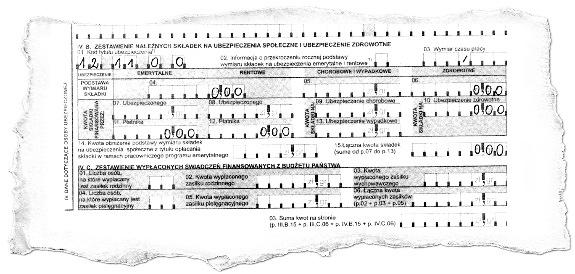 IV B. ZESTAWIENIE NALEŻNYCH SKŁADEK NA UBEZPIECZENIA SPOŁECZNE I UBEZPIECZENIE ZDROWOTNE
01. Kod tytułu ubezpieczenia
02. Informacja o przekroczeniu rocznej podstawy wymiaru składek na ubezpieczenia emerytalne i rentowe
03. Wymiar czasu pracy
1 2 1 1 0 0
UBEZPIECZENIE EMERYTALNE RENTOWE CHOROBOWE I WYPADKOWE ZDROWOTNE
PODSTAWA WYMIARU SKŁADKI
04. 0,00
05.
06. 0,00
07. Ubezpieczonego
08. Ubezpieczonego
09. Ubezpieczenie chorobowe
10. Ubezpieczenie zdrowotne
0,00
11. Płatnika
12. Płatnika
13. Ubezpieczenie wypadkowe
0,00
0,00
14. Kwota obniżenia podstawy wymiaru składek
na ubezpieczenia społeczne z tytułu opłacania
składki w ramach pracowniczego programu emerytalnego
15. Łączna kwota składek
(suma od p.07 do p.13)
0,00
IV C. ZESTAWIENIE WYPŁACONYCH ŚWIADCZEŃ FINANSOWANYCH Z BUDŻETU PAŃSTWA
01. Liczba osób,
na które wypłacany
jest zasiłek rodzinny
02. Kwota wypłaconego
zasiłku rodzinnego
03. Kwota
wypłaconego zasiłku
wychowawczego
04. Liczba osób,
na które wypłacany jest
zasiłek pielęgnacyjny
05. Kwota wypłaconego
zasiłku pielęgnacyjnego
06. Łączna kwota
wypłaconych zasiłków
(p.02 + p.03 + p.05)
03. Suma kwot na stronie
(p. III.B.15 + p. III.C.06 + p. IV.B.15 + p. IV.C.06)
IV. DANE DOTYCZĄCE OSOBY UBEZPIECZONEJ